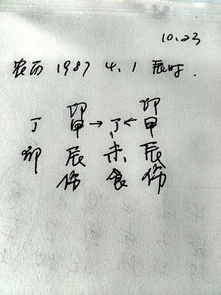 10.23
农历 1987 4.1 辰时.
卯 卯
丁 甲→丁←甲
卯 辰 未 辰
伤 食 伤